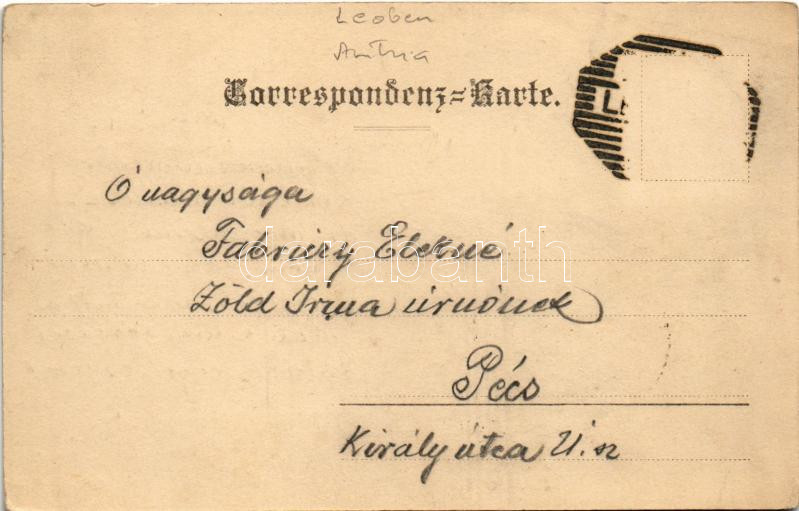 Leoben
Austria
Correspondenz-Karte.
L
Ó nagysága
Fabriczy Elekné
darabanth
Zöld Irma úrnőnek
Pécs
Király útca 11. sz